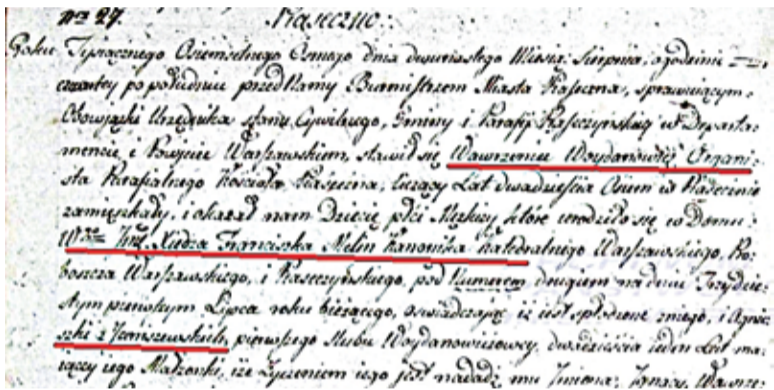 nro 27. Piaseczno.
Roku Tysiącznego Osiemsetnego Osmego dnia dwunastego Miesia: Sierpnia, o godzinie
czwartey po południu przed Namy Burmistrzem Miasta Piaseczna, sprawuiącym
Obowiązki Urzędnika stanu Cywilnego, Gminy i Parafii Piaseczyńskiey w Departa-
mencie i Powiecie Warszawskim, stawił się Wawrzeniec Woydanowicz Organi-
sta Parafialnego Kościoła Piaseczna, liczący Lat dwadzieścia Osm w Piasecznie
zamięszkały, i okazał nam Dziecię płci Męskiey które urodziło się w Domu
Xiędza Franciszka Melin Kanonika Katedralnego Warszawskiego, Pro-
boszcza Warszawskiego, i Piaseczyńskiego, pod Numerem drugiem na dniu Trzydzie-
stym pierwszym Lipca roku bieżącego, oswiadczając iż iest spłodzone z niego, i Agnie-
szki z Janiszewskich, pierwszego ślubu Woydanowiczowey, dwadzieścia ieden Lat ma-
iącey iego Małżonki, iże życzeniem iego jest nadadź mu Imiona: Ignacy Wawrze-